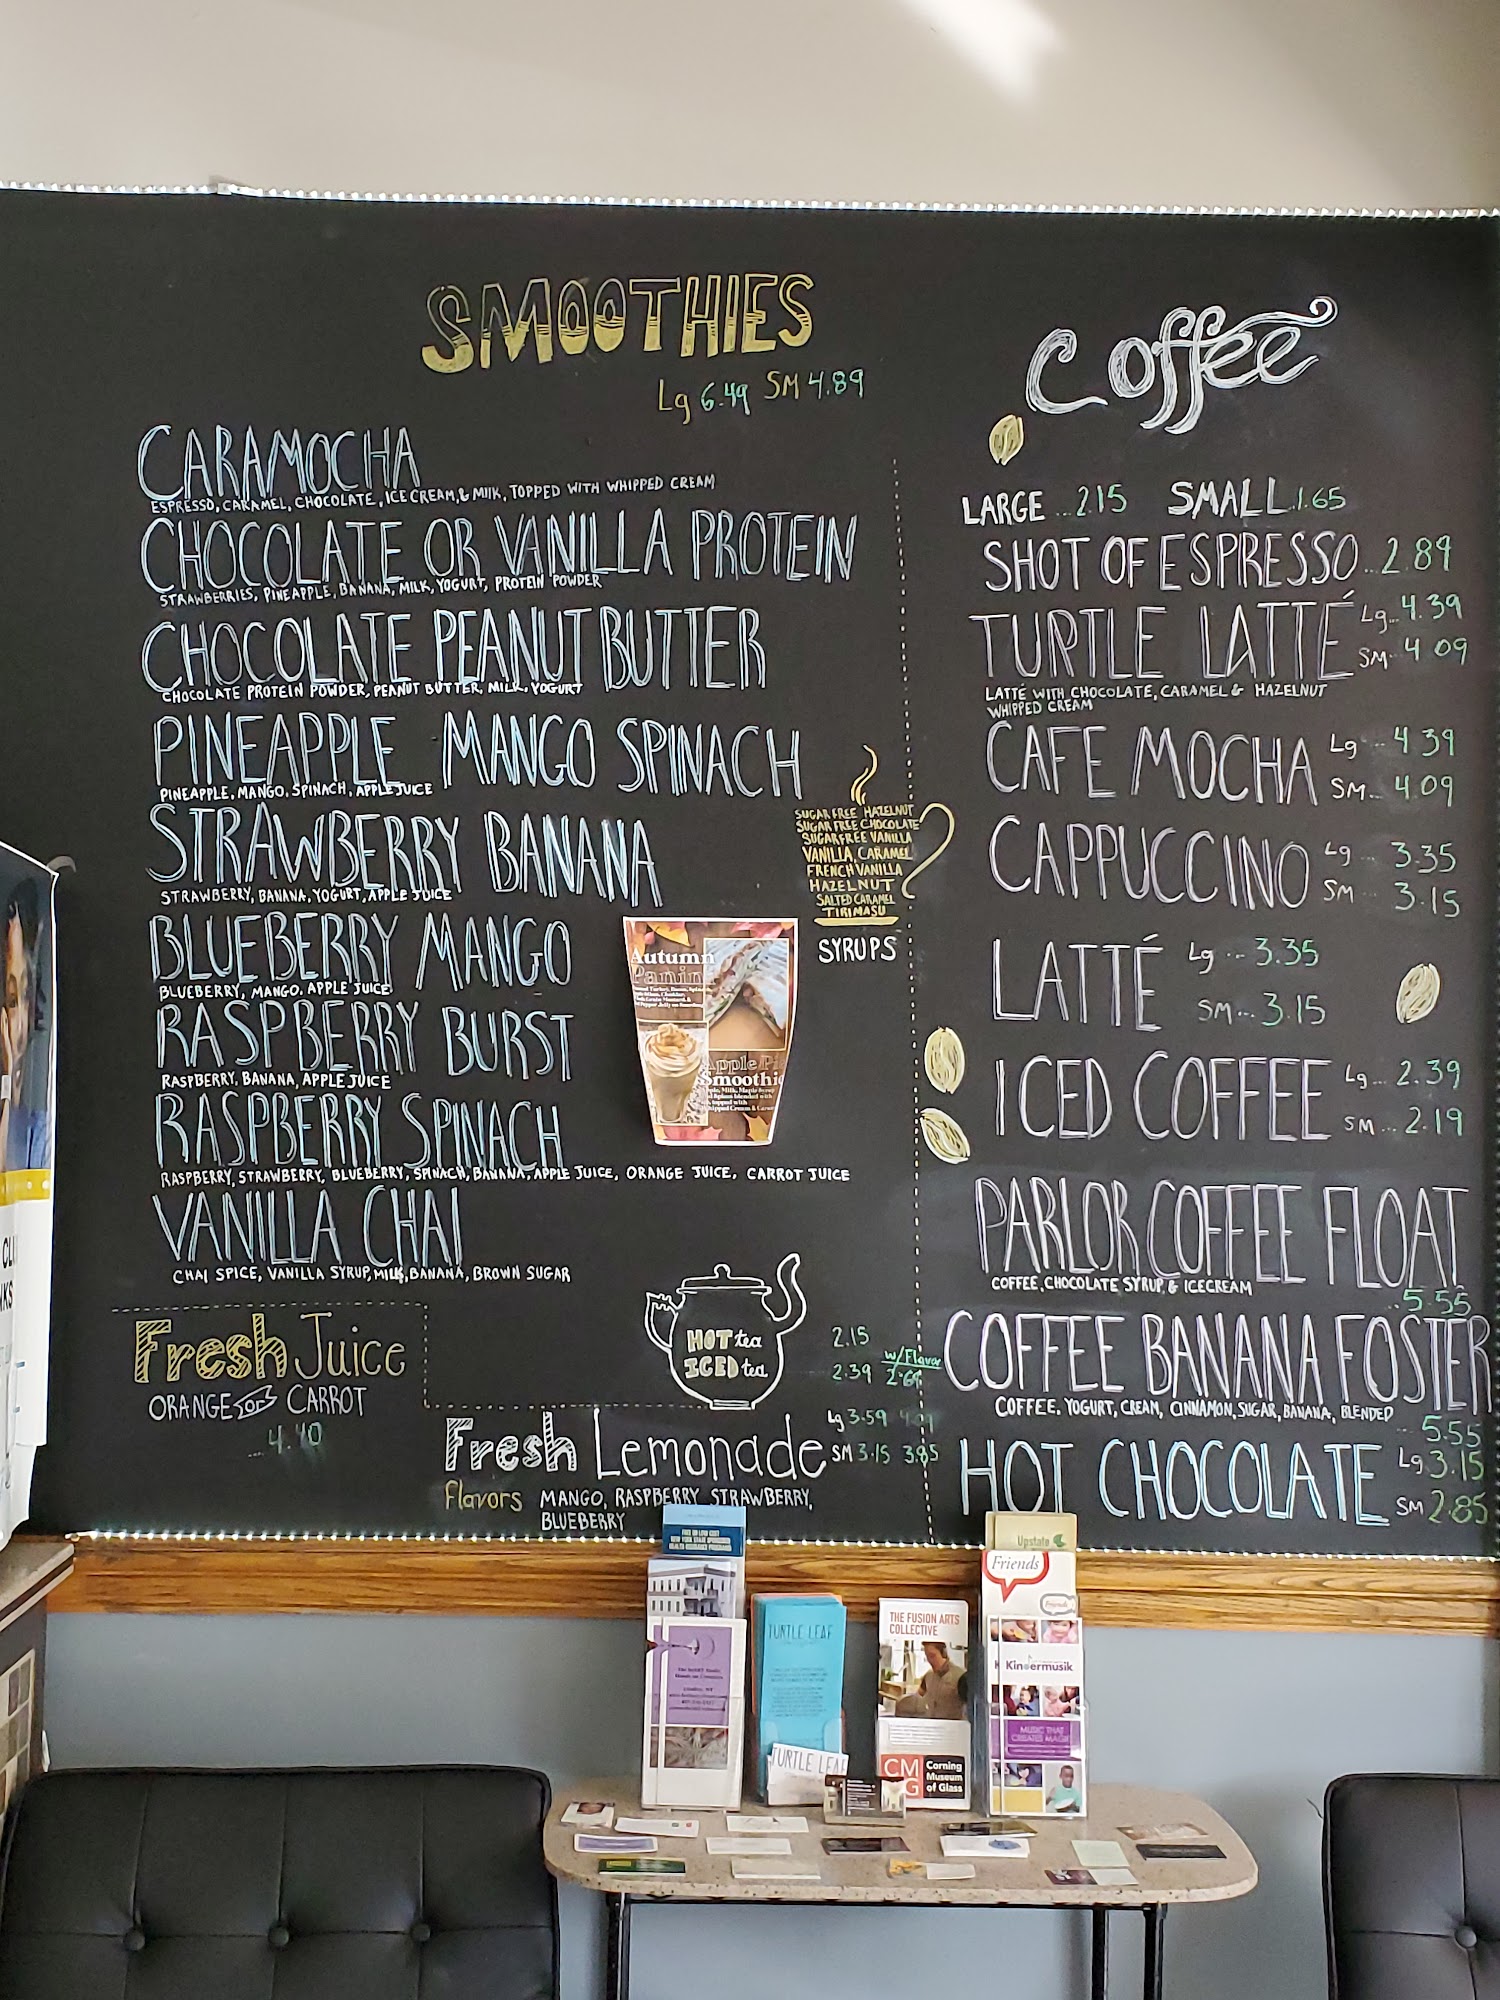 SMOOTHIES
Lg 6.49 SM 4.89
CARAMOCHA
ESPRESSO, CARAMEL, CHOCOLATE, ICE CREAM, & MILK, TOPPED WITH WHIPPED CREAM
CHOCOLATE OR VANILLA PROTEIN
STRAWBERRIES, PINEAPPLE, BANANA, MILK, YOGURT, PROTEIN POWDER
CHOCOLATE PEANUT BUTTER
CHOCOLATE PROTEIN POWDER, PEANUT BUTTER, MILK, YOGURT
PINEAPPLE MANGO SPINACH
PINEAPPLE, MANGO, SPINACH, APPLE JUICE
STRAWBERRY BANANA
STRAWBERRY, BANANA, YOGURT, APPLE JUICE
BLUEBERRY MANGO
BLUEBERRY, MANGO, APPLE JUICE
RASPBERRY BURST
RASPBERRY, BANANA, APPLE JUICE
RASPBERRY SPINACH
RASPBERRY, STRAWBERRY, BLUEBERRY, SPINACH, BANANA, APPLE JUICE, ORANGE JUICE, CARROT JUICE
VANILLA CHAI
CHAI SPICE, VANILLA SYRUP, MILK, BANANA, BROWN SUGAR
SUGAR FREE HAZELNUT
SUGAR FREE CHOCOLATE
SUGAR FREE VANILLA
VANILLA, CARAMEL
FRENCH VANILLA
HAZELNUT
SALTED CARAMEL
TIRIMASU
SYRUPS
Autumn
Panini
Apple Pie
Smoothie
Fresh Juice
ORANGE or CARROT
...4.40
HOT tea 2.15
ICED tea 2.39 w/Flavor 2.69
Fresh Lemonade
Lg 3.59
SM 3.15 3.85
Flavors MANGO, RASPBERRY, STRAWBERRY,
BLUEBERRY
Coffee
LARGE ...2.15 SMALL..1.65
SHOT OF ESPRESSO...2.89
TURTLE LATTÉ Lg... 4.39
SM.. 4.09
LATTÉ WITH CHOCOLATE, CARAMEL & HAZELNUT
WHIPPED CREAM
CAFE MOCHA Lg ... 4.39
SM... 4.09
CAPPUCCINO Lg ... 3.35
SM ... 3.15
LATTÉ Lg ... 3.35
SM... 3.15
ICED COFFEE Lg... 2.39
SM ... 2.19
PARLOR COFFEE FLOAT
COFFEE, CHOCOLATE SYRUP, & ICECREAM
...5.55
COFFEE BANANA FOSTER
COFFEE, YOGURT, CREAM, CINNAMON, SUGAR, BANANA, BLENDED
... 5.55
HOT CHOCOLATE Lg 3.15
SM 2.85
TURTLE LEAF
TURTLE LEAF
THE FUSION ARTS
COLLECTIVE
CM
G
Corning
Museum
of Glass
Upstate
Friends
Kindermusik
MUSIC THAT
CREATES MAGIC